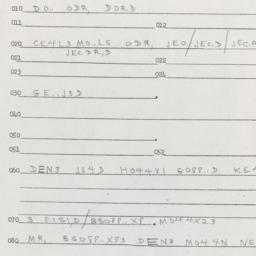 010 DO. ODR, DORD
011 012
020 CE4L3 MO..LS ODR, JEO/JECD/JECR
JECDR,D
021 022
023 024
030 SE..J3D
040
050
051 052
060 DEN3 JS4D MO44VI SOPP..D KE4
070 3 FISI,D/BSOPP..XP. MO44X23
080 MR, BSOPP..XP3 DEN3 MO44N NE